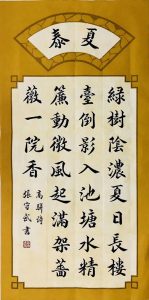 夏泰
綠樹陰濃夏日長樓
臺倒影入池塘水精
簾動微風起滿架薔
薇一院香
高駢詩
張守武書